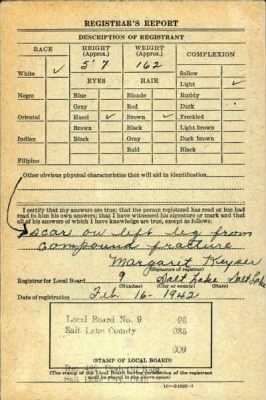 REGISTRAR'S REPORT
DESCRIPTION OF REGISTRANT
RACE HEIGHT (Approx.) WEIGHT (Approx.) COMPLEXION
5' 7 162
White ✓ EYES HAIR Sallow
Light ✓
Negro Blue Blonde Ruddy
Gray Red Dark
Oriental Hazel ✓ Brown ✓ Freckled
Brown Black Light brown
Indian Black Gray Dark brown
Bald Black
Filipino
Other obvious physical characteristics that will aid in identification
I certify that my answers are true; that the person registered has read or has had
read to him his own answers; that I have witnessed his signature or mark and that
all of his answers of which I have knowledge are true, except as follows:
scar on left leg from
compound fracture
Margaret Keyser
(Signature of registrar)
Registrar for Local Board 9 Salt Lake Salt Lake
(Number) (City or county) (State)
Date of registration Feb. 16-1942
Local Board No. 9 96
Salt Lake County 035
009
(STAMP OF LOCAL BOARD)
(The stamp of the Local Board having jurisdiction of the registrant
shall be placed in the above space)